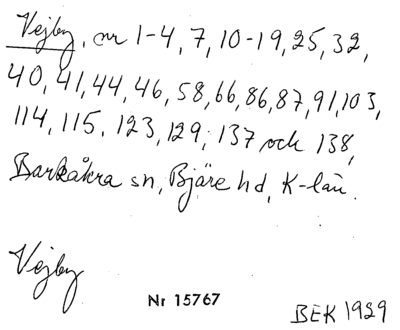 Vejby, nr 1-4, 7, 10-19, 25, 32,
40, 41, 44, 46, 58, 66, 86, 87, 91, 103,
114, 115, 123, 129, 137 och 138,
Barkåkra sn, Bjäre hd, K-län.
Vejby
Nr 15767
BEK 1929